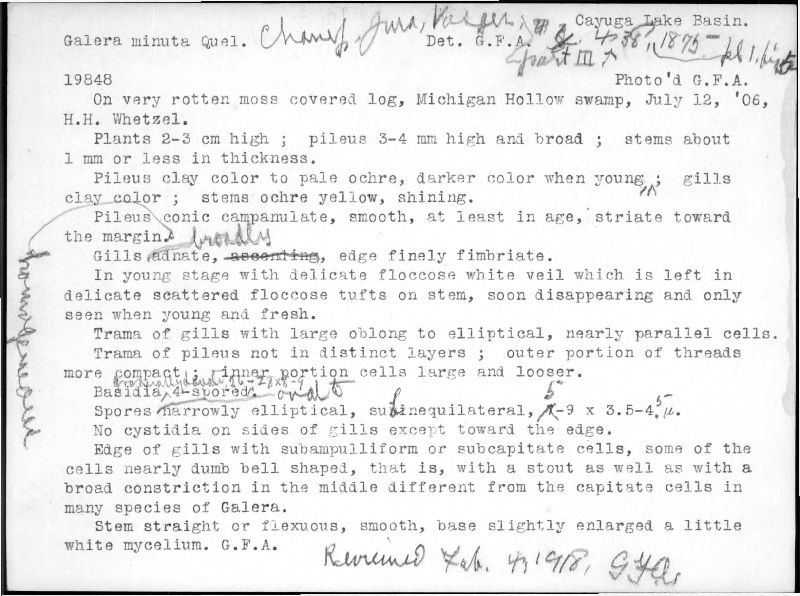 Cayuga Lake Basin.
Galera minuta Quel. Champ. Jura, Vosges, Det. G.F.A. 4, 38, 1875 pl 1, fig
part III
19848 Photo'd G.F.A.
On very rotten moss covered log, Michigan Hollow swamp, July 12, '06,
H.H. Whetzel.
Plants 2-3 cm high ; pileus 3-4 mm high and broad ; stems about
1 mm or less in thickness.
Pileus clay color to pale ochre, darker color when young ; gills
clay color ; stems ochre yellow, shining.
Pileus conic campanulate, smooth, at least in age, striate toward
the margin.
broadly
Gills adnate, ascending, edge finely fimbriate.
In young stage with delicate floccose white veil which is left in
delicate scattered floccose tufts on stem, soon disappearing and only
seen when young and fresh.
Trama of gills with large oblong to elliptical, nearly parallel cells.
Trama of pileus not in distinct layers ; outer portion of threads
more compact ; inner portion cells large and looser.
Basidia 4-spored. oval to
5 5
Spores narrowly elliptical, subinequilateral, -9 x 3.5-4. µ.
No cystidia on sides of gills except toward the edge.
Edge of gills with subampulliform or subcapitate cells, some of the
cells nearly dumb bell shaped, that is, with a stout as well as with a
broad constriction in the middle different from the capitate cells in
many species of Galera.
Stem straight or flexuous, smooth, base slightly enlarged a little
white mycelium. G.F.A.
Reviewed Feb. 4, 1918, GFA.